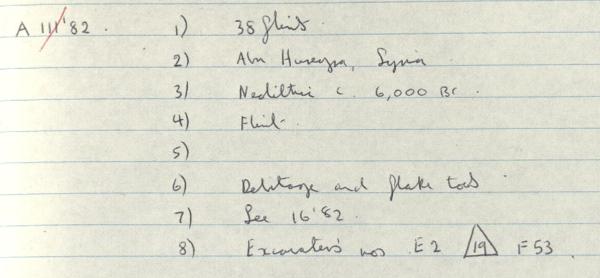 A 111'82. 1) 38 flints.
2) Abu Hureyra, Syria
3) Neolithic c. 6,000 BC.
4) Flint.
5)
6) Debitage and flake tools
7) See 16'82.
8) Excavator's nos E2 19 F53